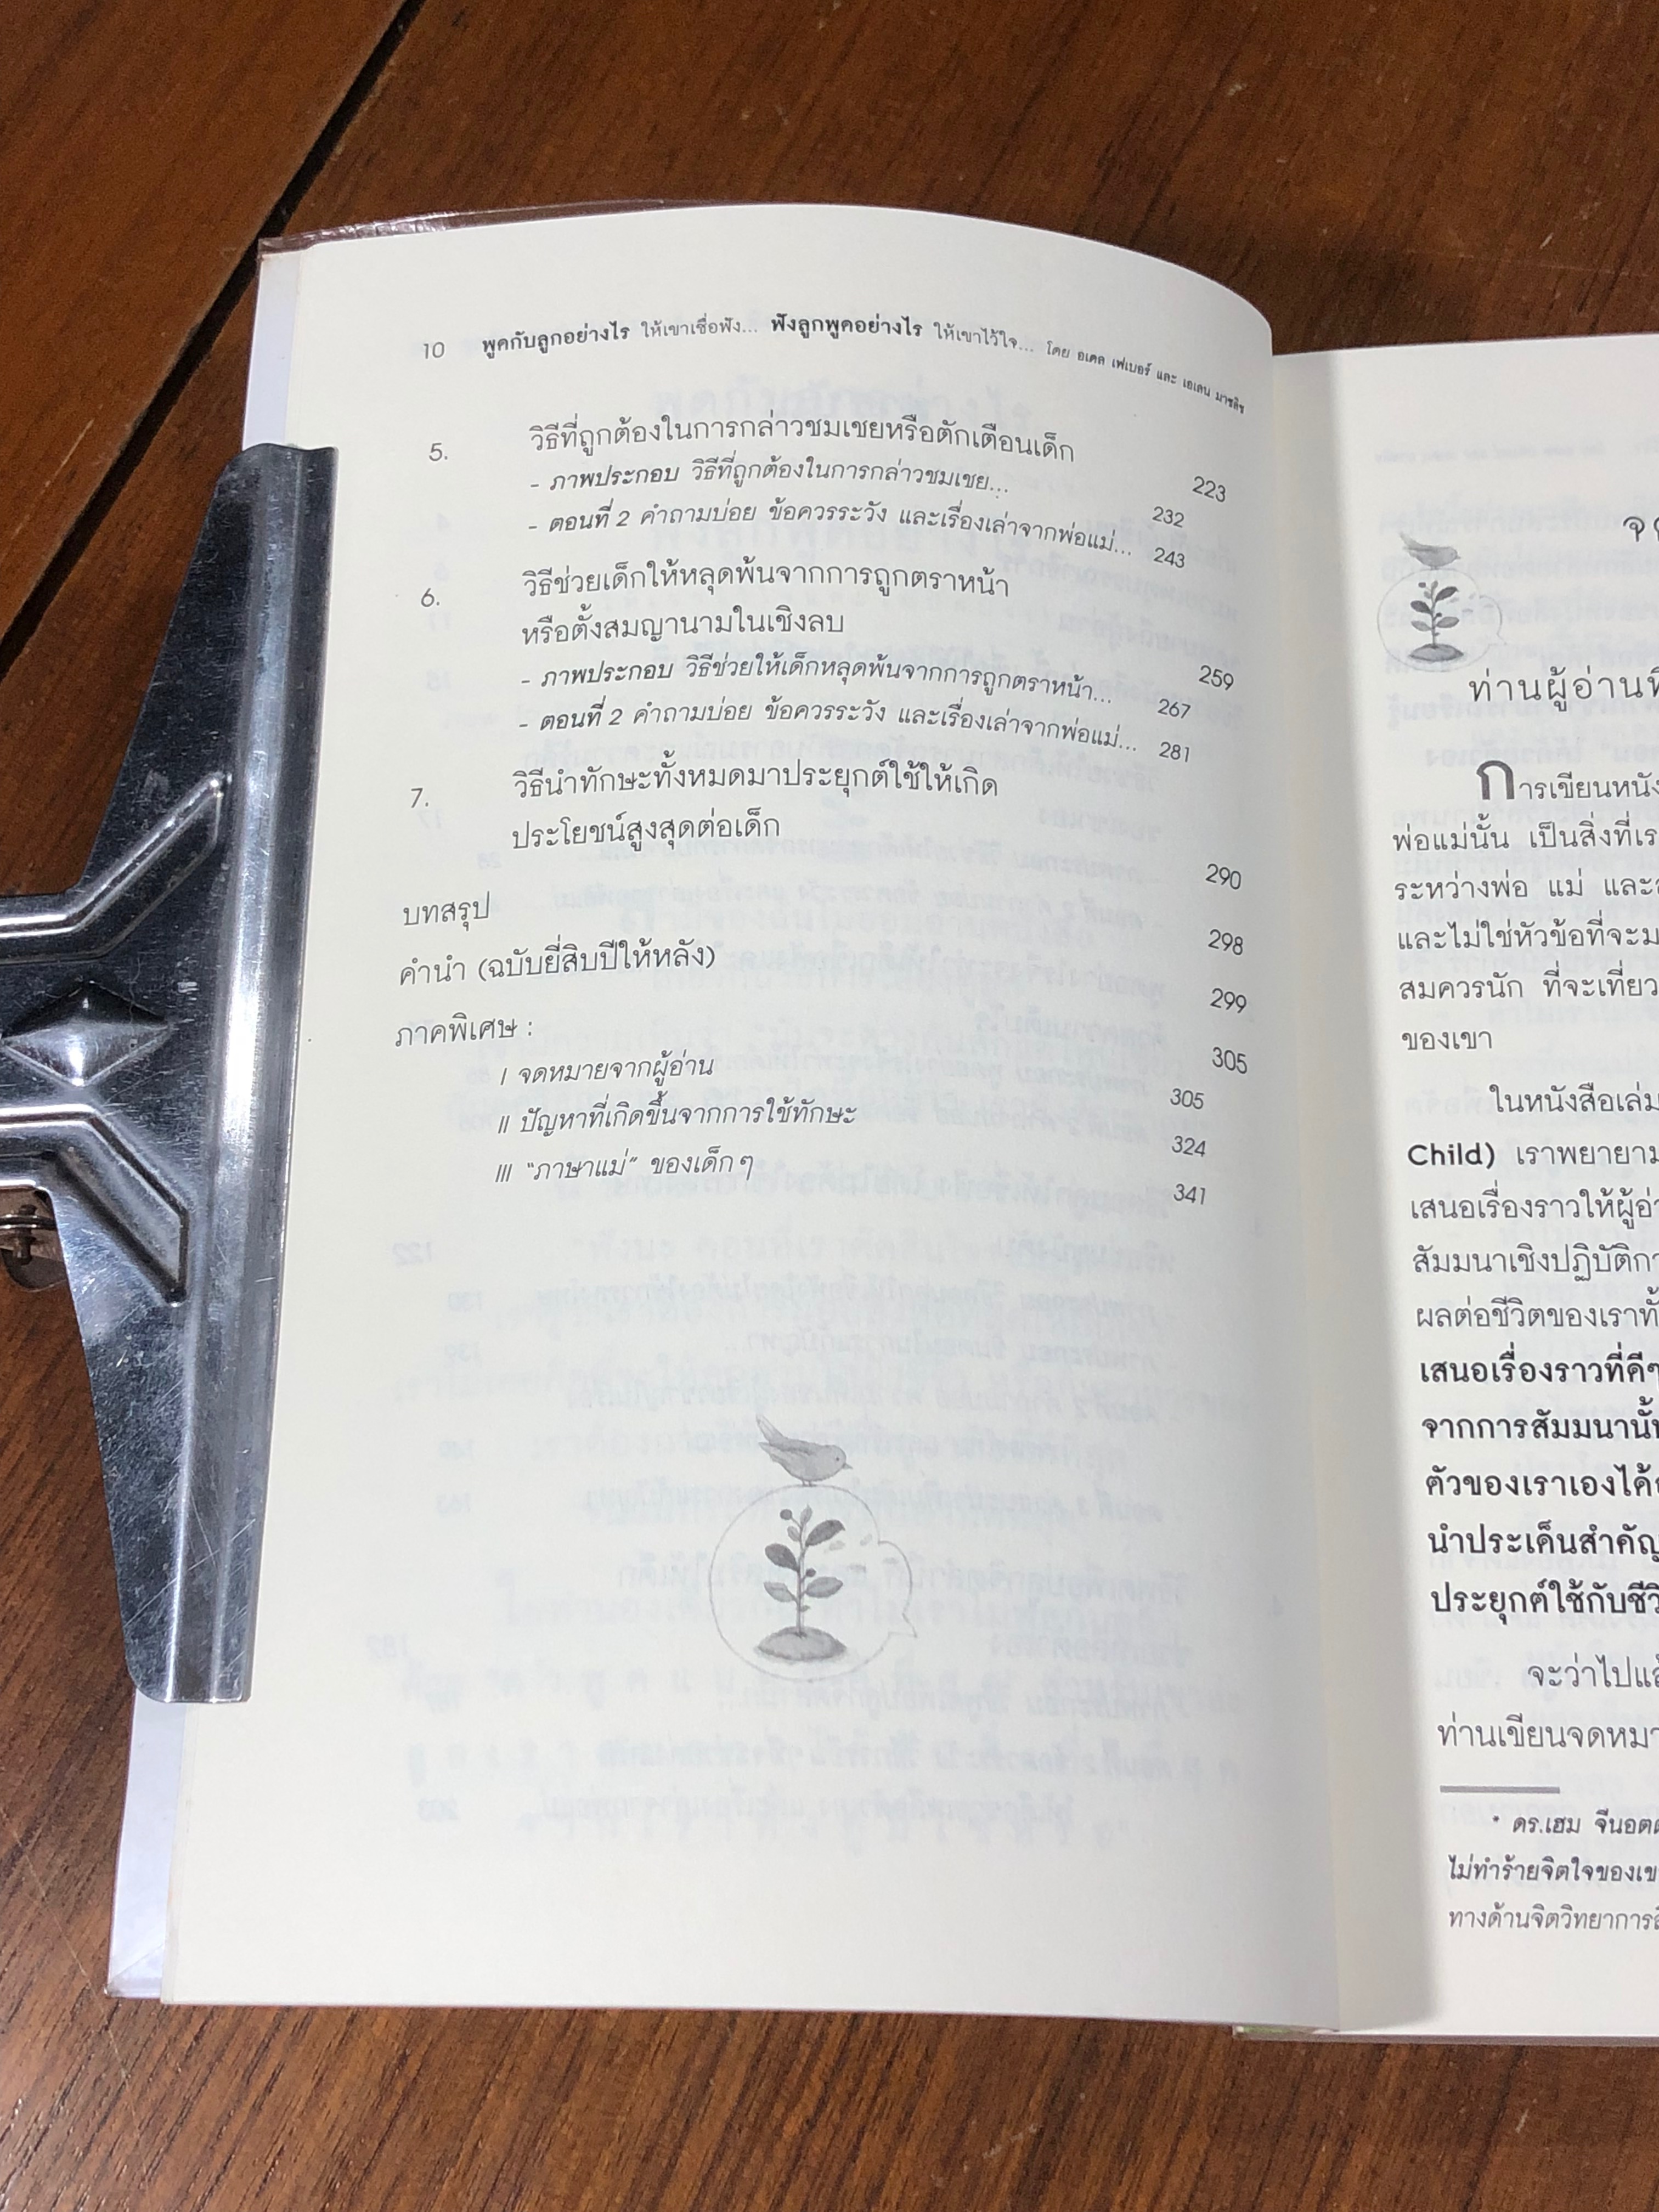 10 พูดกับลูกอย่างไร ให้เขาเชื่อฟัง... ฟังลูกพูดอย่างไร ให้เขาไว้ใจ... โดย อเดล เฟเบอร์ และ เอเลน มาซลิช
5. วิธีที่ถูกต้องในการกล่าวชมเชยหรือตักเตือนเด็ก 223
- ภาพประกอบ วิธีที่ถูกต้องในการกล่าวชมเชย... 232
- ตอนที่ 2 คำถามบ่อย ข้อควรระวัง และเรื่องเล่าจากพ่อแม่... 243
6. วิธีช่วยเด็กให้หลุดพ้นจากการถูกตราหน้า
หรือตั้งสมญานามในเชิงลบ 259
- ภาพประกอบ วิธีช่วยให้เด็กหลุดพ้นจากการถูกตราหน้า... 267
- ตอนที่ 2 คำถามบ่อย ข้อควรระวัง และเรื่องเล่าจากพ่อแม่... 281
7. วิธีนำทักษะทั้งหมดมาประยุกต์ใช้ให้เกิด
ประโยชน์สูงสุดต่อเด็ก 290
บทสรุป 298
คำนำ (ฉบับยี่สิบปีให้หลัง) 299
ภาคพิเศษ : 305
I จดหมายจากผู้อ่าน 305
II ปัญหาที่เกิดขึ้นจากการใช้ทักษะ 324
III "ภาษาแม่" ของเด็กๆ 341
ท่านผู้อ่านที่
การเขียนหนัง
พ่อแม่นั้น เป็นสิ่งที่เร
ระหว่างพ่อ แม่ และ
และไม่ใช่หัวข้อที่จะม
สมควรนัก ที่จะเที่ยว
ของเขา
ในหนังสือเล่ม
Child) เราพยายาม
เสนอเรื่องราวให้ผู้อ่า
สัมมนาเชิงปฏิบัติกา
ผลต่อชีวิตของเราทั้
เสนอเรื่องราวที่ดีๆ
จากการสัมมนานั้น
ตัวของเราเองได้
นำประเด็นสำคัญ
ประยุกต์ใช้กับชีวิ
จะว่าไปแล้
ท่านเขียนจดหมา
* ดร.เฮม จีนอตต
ไม่ทำร้ายจิตใจของเข
ทางด้านจิตวิทยาการ